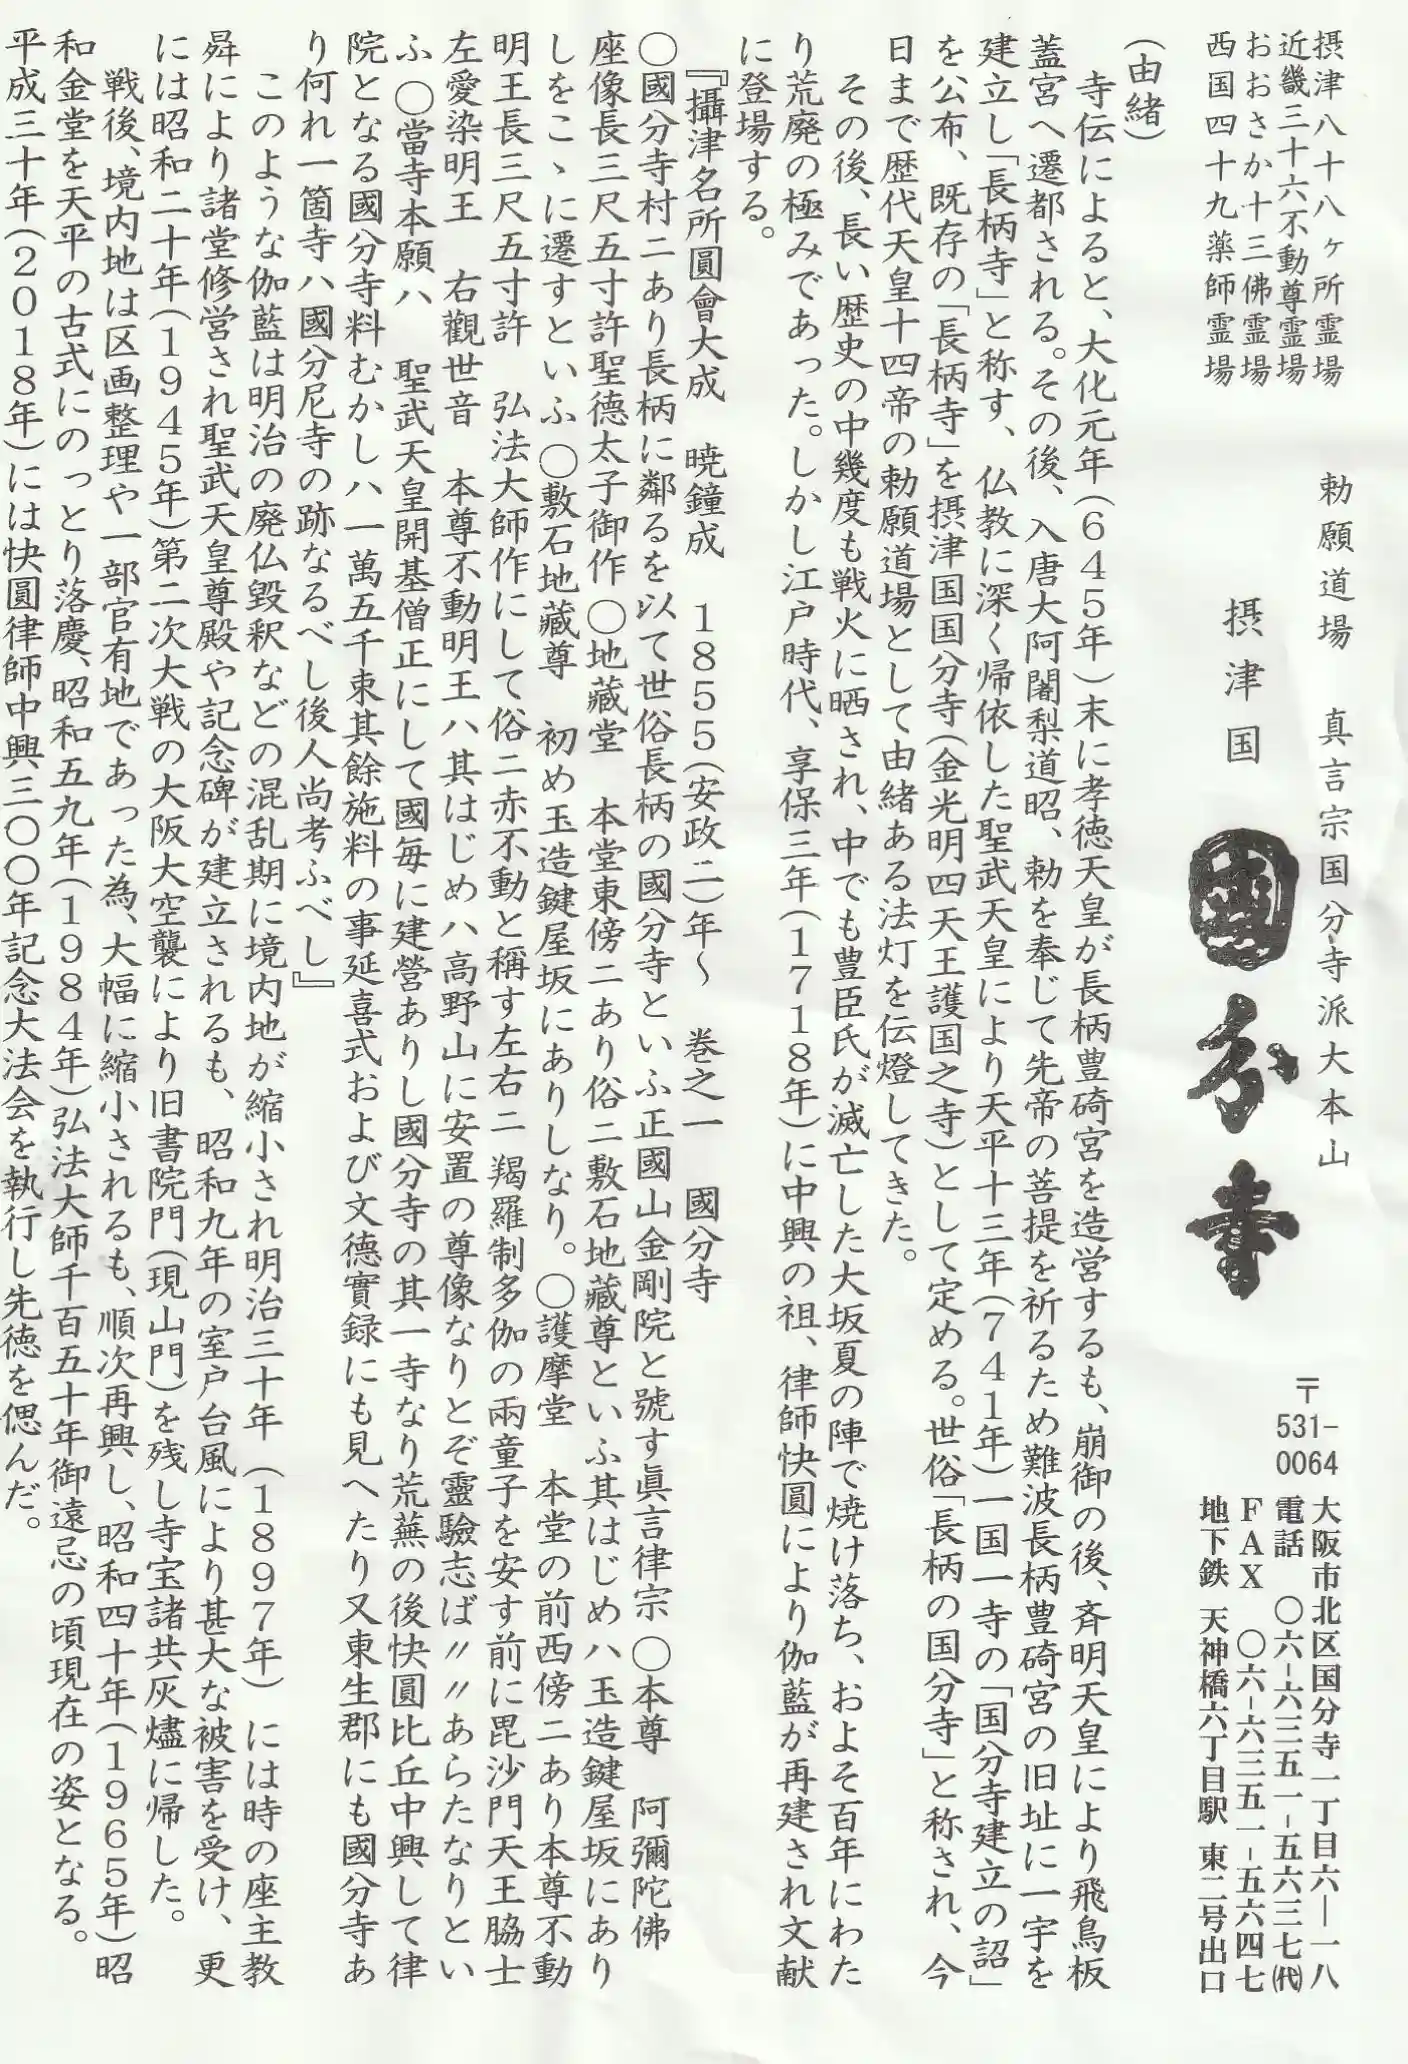 摂津八十八ヶ所霊場
近畿三十六不動尊霊場
おおさか十三佛霊場
西国四十九薬師霊場
勅願道場　真言宗国分寺派大本山
摂津国　國分寺
〒531-0064
大阪市北区国分寺一丁目六―一八
電話　〇六-六三五一-五六三七(代)
FAX　〇六-六三五一-五六四七
地下鉄 天神橋六丁目駅 東二号出口
(由緒)
　寺伝によると、大化元年(645年)末に孝徳天皇が長柄豊碕宮を造営するも、崩御の後、斉明天皇により飛鳥板
蓋宮へ遷都される。その後、入唐大阿闍梨道昭、勅を奉じて先帝の菩提を祈るため難波長柄豊碕宮の旧址に一宇を
建立し「長柄寺」と称す、仏教に深く帰依した聖武天皇により天平十三年(741年)一国一寺の「国分寺建立の詔」
を公布、既存の「長柄寺」を摂津国国分寺(金光明四天王護国之寺)として定める。世俗「長柄の国分寺」と称され、今
日まで歴代天皇十四帝の勅願道場として由緒ある法灯を伝燈してきた。
　その後、長い歴史の中幾度も戦火に晒され、中でも豊臣氏が滅亡した大坂夏の陣で焼け落ち、およそ百年にわた
り荒廃の極みであった。しかし江戸時代、享保三年(1718年)に中興の祖、律師快圓により伽藍が再建され文献
に登場する。
　『攝津名所圓會大成　暁鐘成　1855(安政二)年～　巻之一　國分寺
〇國分寺村ニあり長柄に鄰るを以て世俗長柄の國分寺といふ正國山金剛院と號す眞言律宗〇本尊　阿彌陀佛
座像長三尺五寸許聖德太子御作〇地藏堂　本堂東傍ニあり俗ニ敷石地藏尊といふ其はじめハ玉造鍵屋坂にあり
しをこゝに遷すといふ〇敷石地藏尊　初め玉造鍵屋坂にありしなり。〇護摩堂　本堂の前西傍ニあり本尊不動
明王長三尺五寸許　弘法大師作にして俗ニ赤不動と稱す左右ニ 羯羅制多伽の兩童子を安す前に毘沙門天王脇士
左愛染明王　右觀世音　本尊不動明王ハ其はじめハ高野山に安置の尊像なりとぞ靈驗志ば〃〃あらたなりとい
ふ〇當寺本願ハ　聖武天皇開基僧正にして國毎に建營ありし國分寺の其一寺なり荒蕪の後快圓比丘中興して律
院となる國分寺料むかしハ一萬五千束其餘施料の事延喜式および文德實録にも見へたり又東生郡にも國分寺あ
り何れ一箇寺ハ國分尼寺の跡なるべし後人尚考ふべし』
　このような伽藍は明治の廃仏毀釈などの混乱期に境内地が縮小され明治三十年(1897年)には時の座主教
舜により諸堂修営され聖武天皇尊殿や記念碑が建立されるも、昭和九年の室戸台風により甚大な被害を受け、更
には昭和二十年(1945年)第二次大戦の大阪大空襲により旧書院門(現山門)を残し寺宝諸共灰燼に帰した。
　戦後、境内地は区画整理や一部官有地であった為、大幅に縮小されるも、順次再興し、昭和四十年(1965年)昭
和金堂を天平の古式にのっとり落慶、昭和五九年(1984年)弘法大師千百五十年御遠忌の頃現在の姿となる。
平成三十年(2018年)には快圓律師中興三〇〇年記念大法会を執行し先徳を偲んだ。